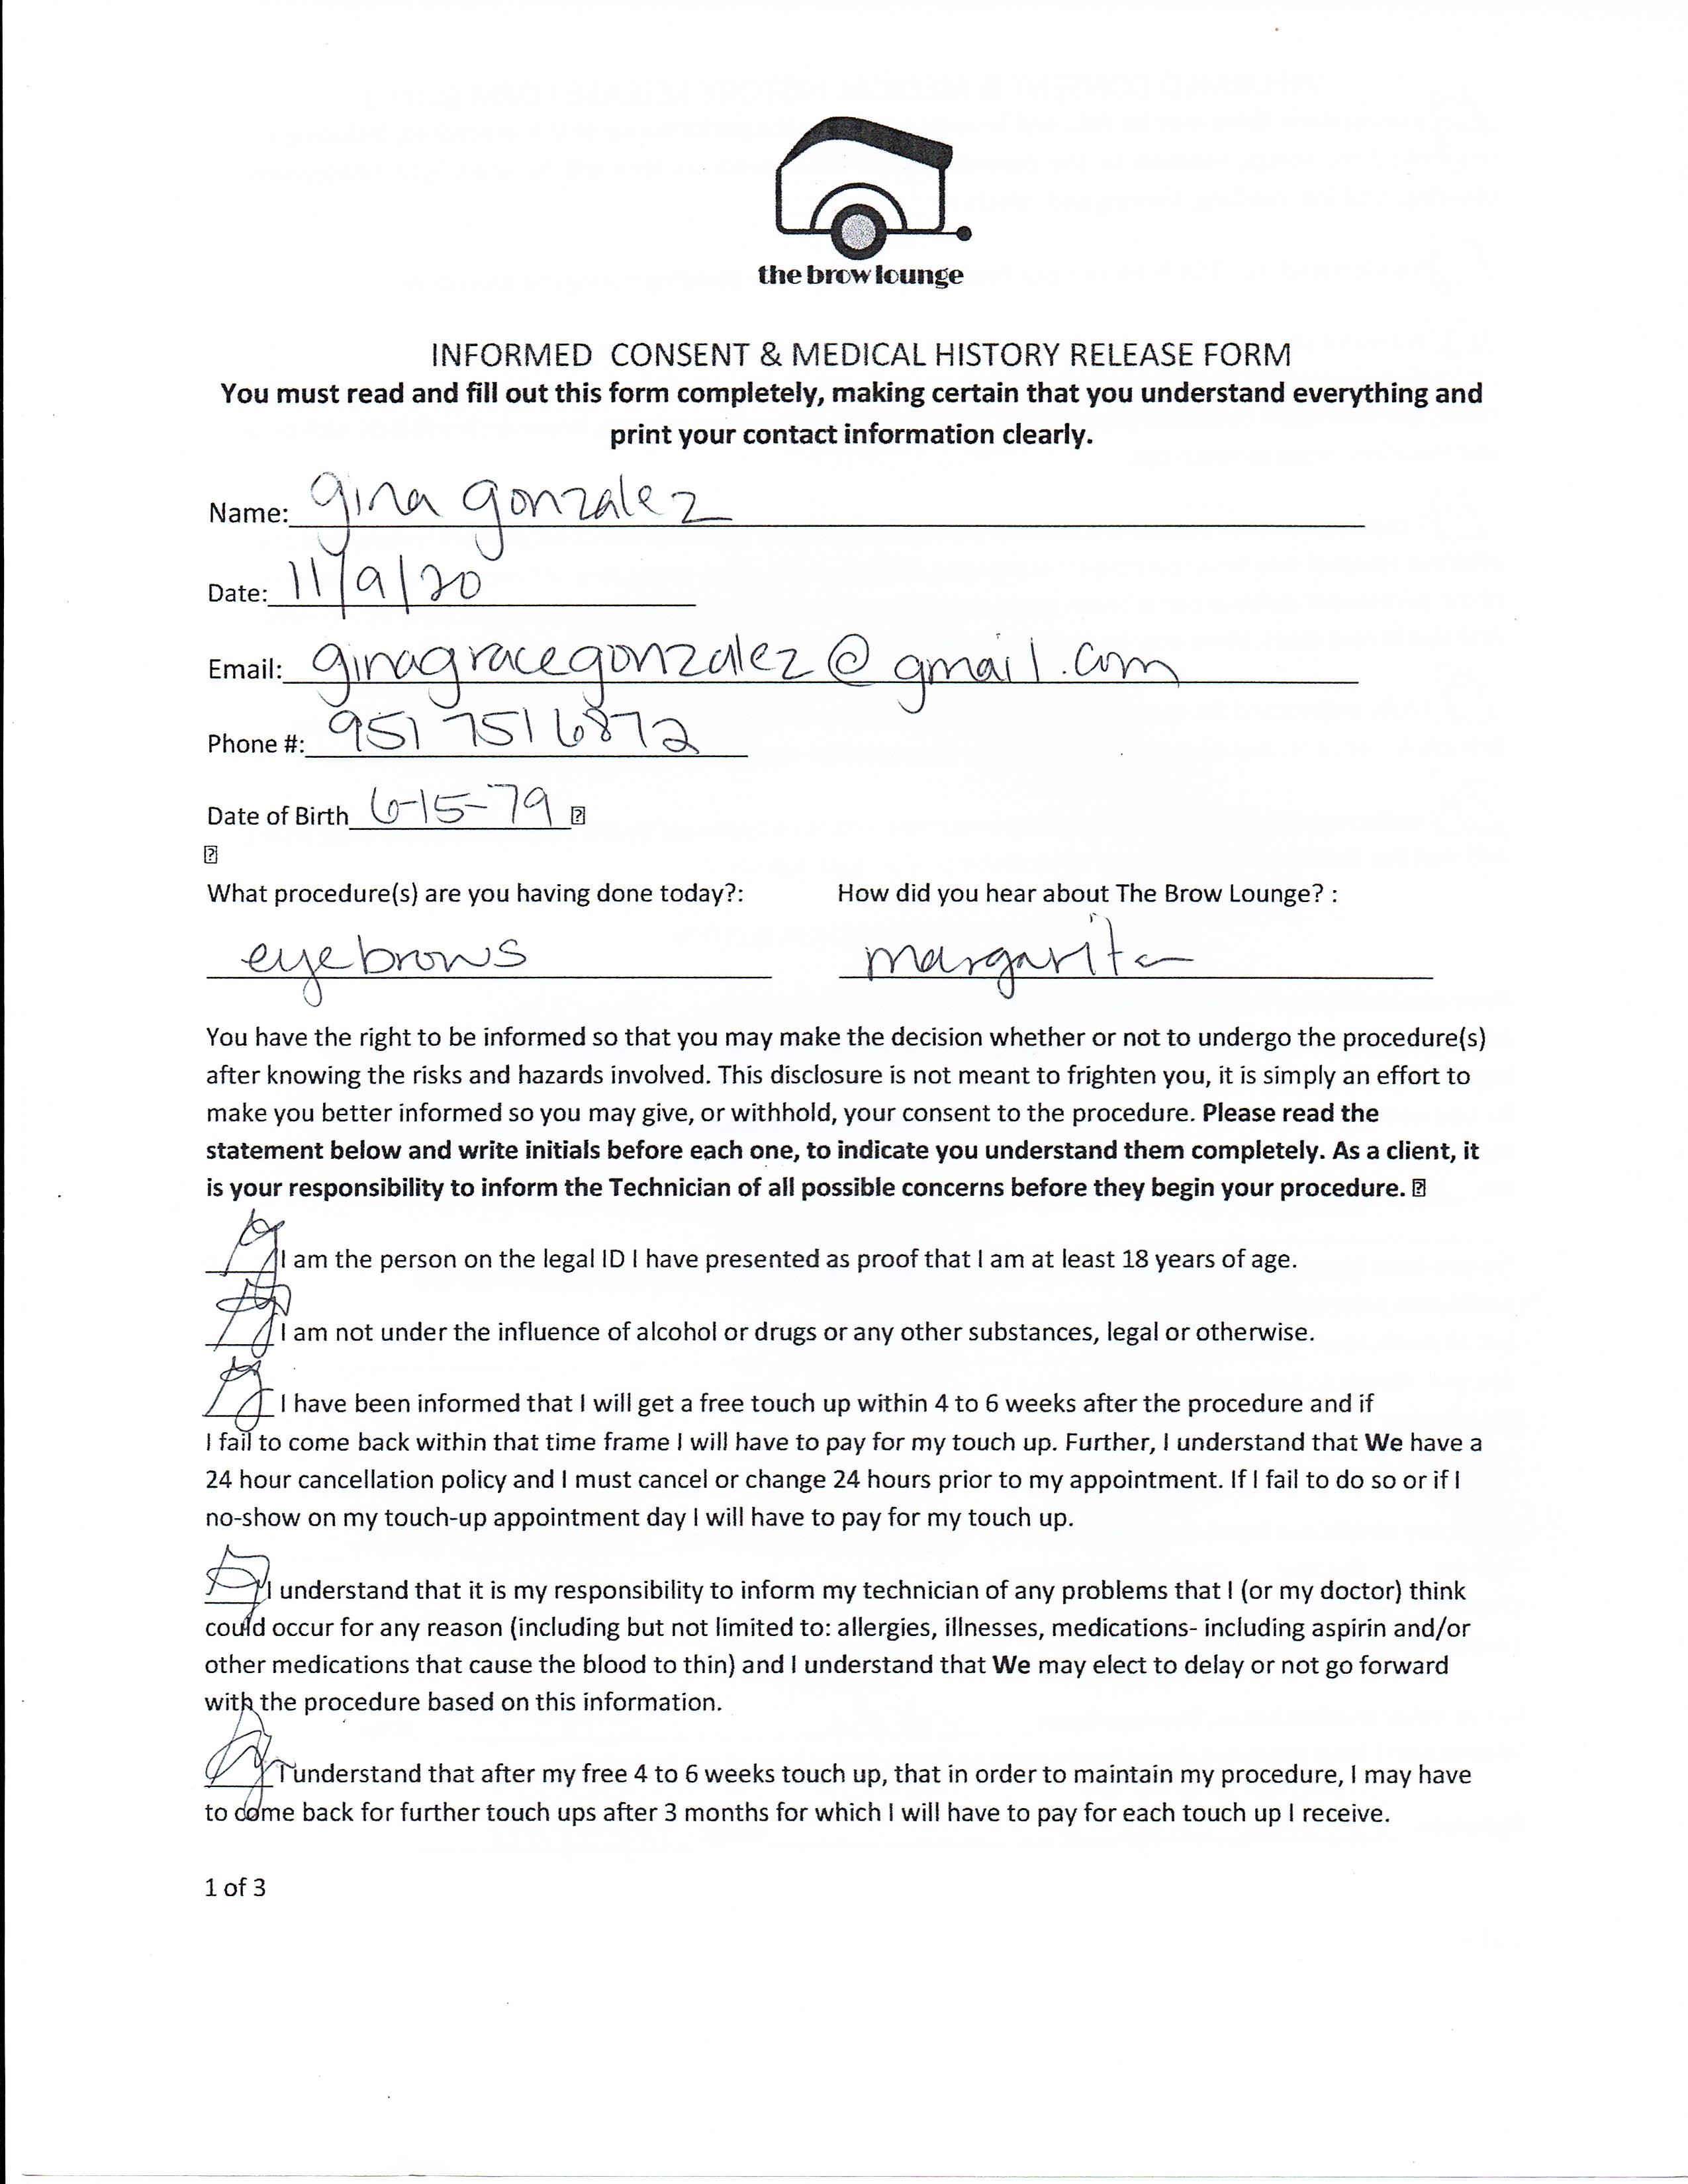 the brow lounge
INFORMED CONSENT & MEDICAL HISTORY RELEASE FORM
You must read and fill out this form completely, making certain that you understand everything and
print your contact information clearly.
Name: gina gonzalez
Date: 11/9/20
Email: ginagracegonzalez@gmail.com
Phone #: 951 751 6872
Date of Birth 6-15-79
What procedure(s) are you having done today?: How did you hear about The Brow Lounge? :
eyebrows margarita
You have the right to be informed so that you may make the decision whether or not to undergo the procedure(s)
after knowing the risks and hazards involved. This disclosure is not meant to frighten you, it is simply an effort to
make you better informed so you may give, or withhold, your consent to the procedure. Please read the
statement below and write initials before each one, to indicate you understand them completely. As a client, it
is your responsibility to inform the Technician of all possible concerns before they begin your procedure.
I am the person on the legal ID I have presented as proof that I am at least 18 years of age.
I am not under the influence of alcohol or drugs or any other substances, legal or otherwise.
I have been informed that I will get a free touch up within 4 to 6 weeks after the procedure and if
I fail to come back within that time frame I will have to pay for my touch up. Further, I understand that We have a
24 hour cancellation policy and I must cancel or change 24 hours prior to my appointment. If I fail to do so or if I
no-show on my touch-up appointment day I will have to pay for my touch up.
I understand that it is my responsibility to inform my technician of any problems that I (or my doctor) think
could occur for any reason (including but not limited to: allergies, illnesses, medications- including aspirin and/or
other medications that cause the blood to thin) and I understand that We may elect to delay or not go forward
with the procedure based on this information.
I understand that after my free 4 to 6 weeks touch up, that in order to maintain my procedure, I may have
to come back for further touch ups after 3 months for which I will have to pay for each touch up I receive.
1 of 3